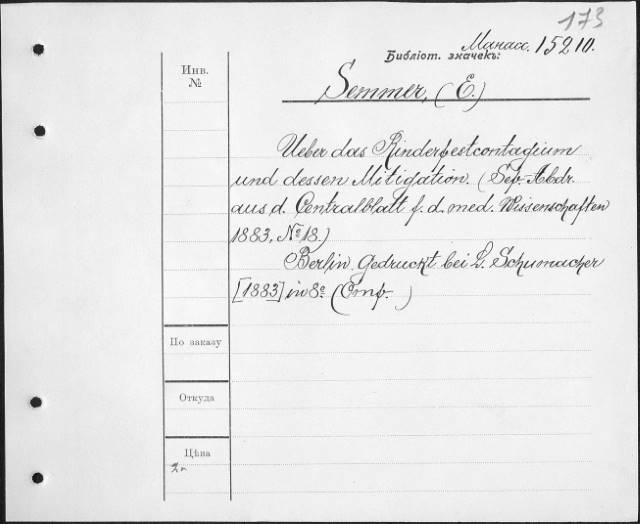 173
Манасс. 15210.
Библіот. значекъ:
Инв.
№
Semmer, (E.)
Ueber das Rinderpestcontagium
und dessen Mitigation. (Sep.-Abdr.
aus d. Centralblatt f. d. med. Wissenschaften
1883, № 18.)
Berlin. Gedruckt bei L. Schumacher
[1883] in 8º (Стр. )
По заказу
Откуда
Цѣна